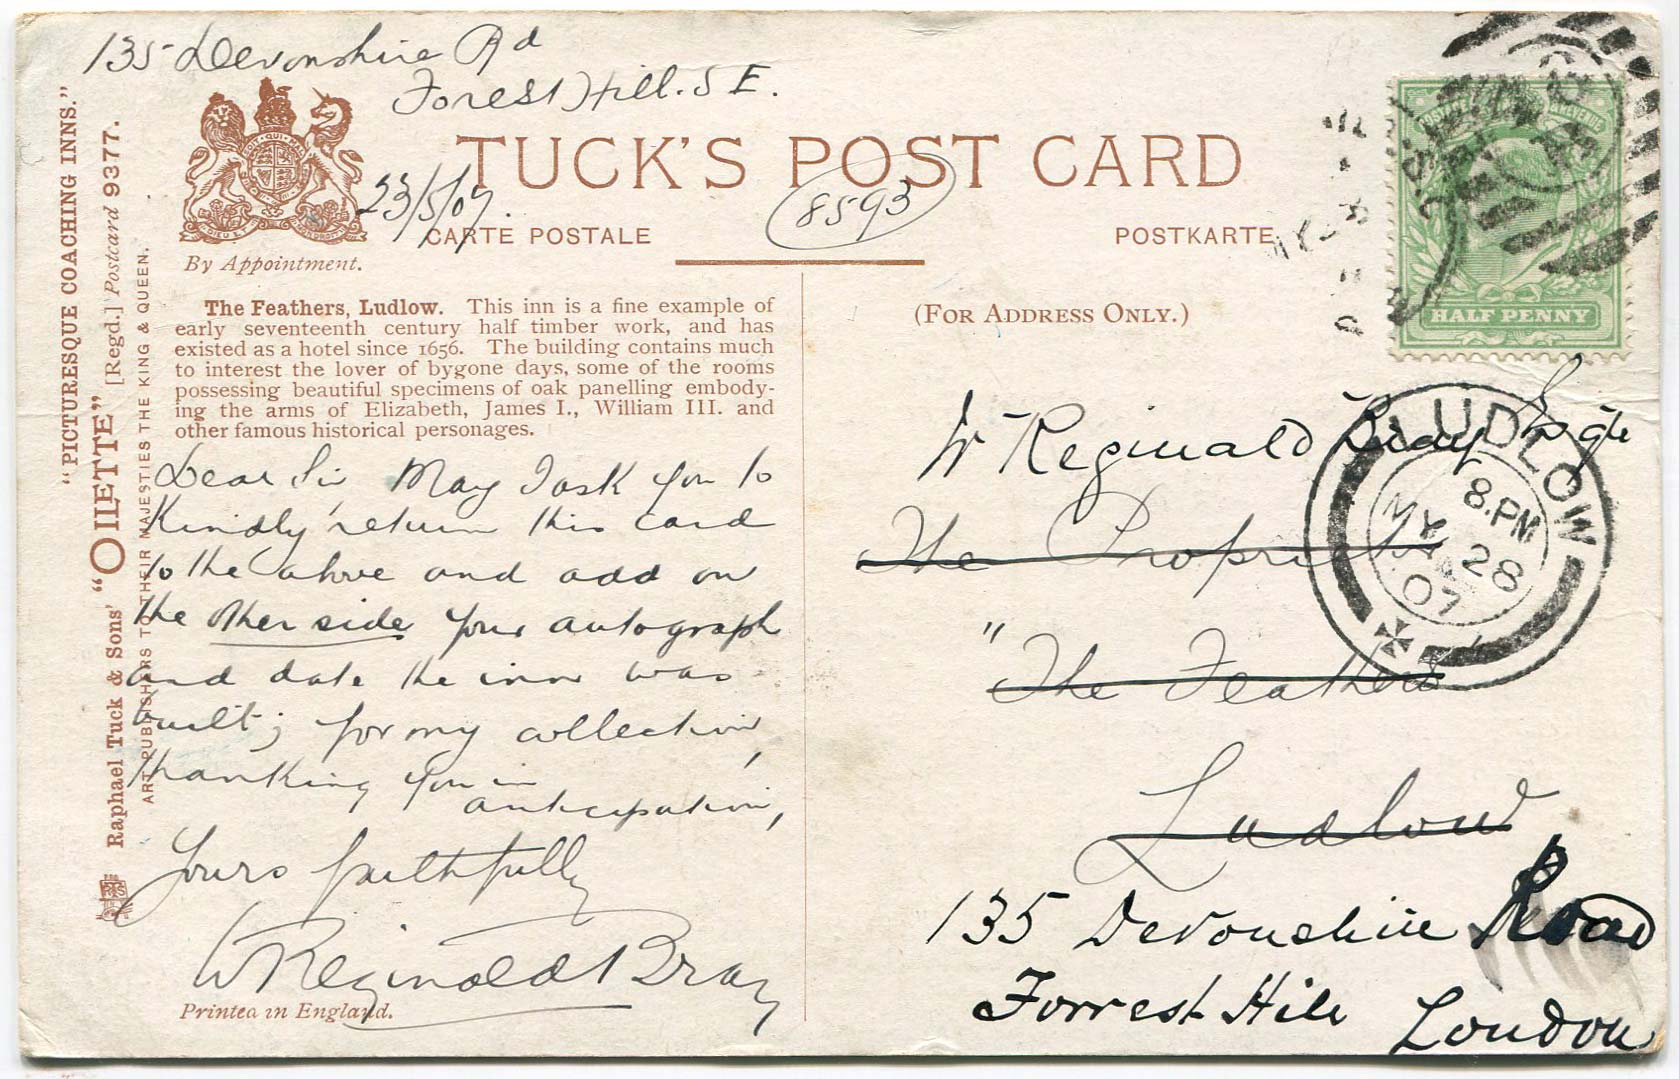 135 Devonshire Rd
Forest Hill. S E.
23/5/07.
TUCK'S POST CARD
8593
CARTE POSTALE
POSTKARTE
By Appointment.
"PICTURESQUE COACHING INNS."
Raphael Tuck & Sons' "OILETTE" [Regd.] Postcard 9377.
ART PUBLISHERS TO THEIR MAJESTIES THE KING & QUEEN.
The Feathers, Ludlow. This inn is a fine example of
early seventeenth century half timber work, and has
existed as a hotel since 1656. The building contains much
to interest the lover of bygone days, some of the rooms
possessing beautiful specimens of oak panelling embody-
ing the arms of Elizabeth, James I., William III. and
other famous historical personages.
Dear Sir May I ask you to
Kindly return this card
to the above and add on
the other side your autograph
and date the inn was
built; for my collection,
thanking you in
anticipation,
Yours faithfully
W Reginald Bray
Printed in England.
(FOR ADDRESS ONLY.)
HALF PENNY
W Reginald Bray Esqr
The Proprietor
"The Feathers
Ludlow
135 Devonshire Road
Forrest Hill
London
LUDLOW
8.PM
MY 28
07